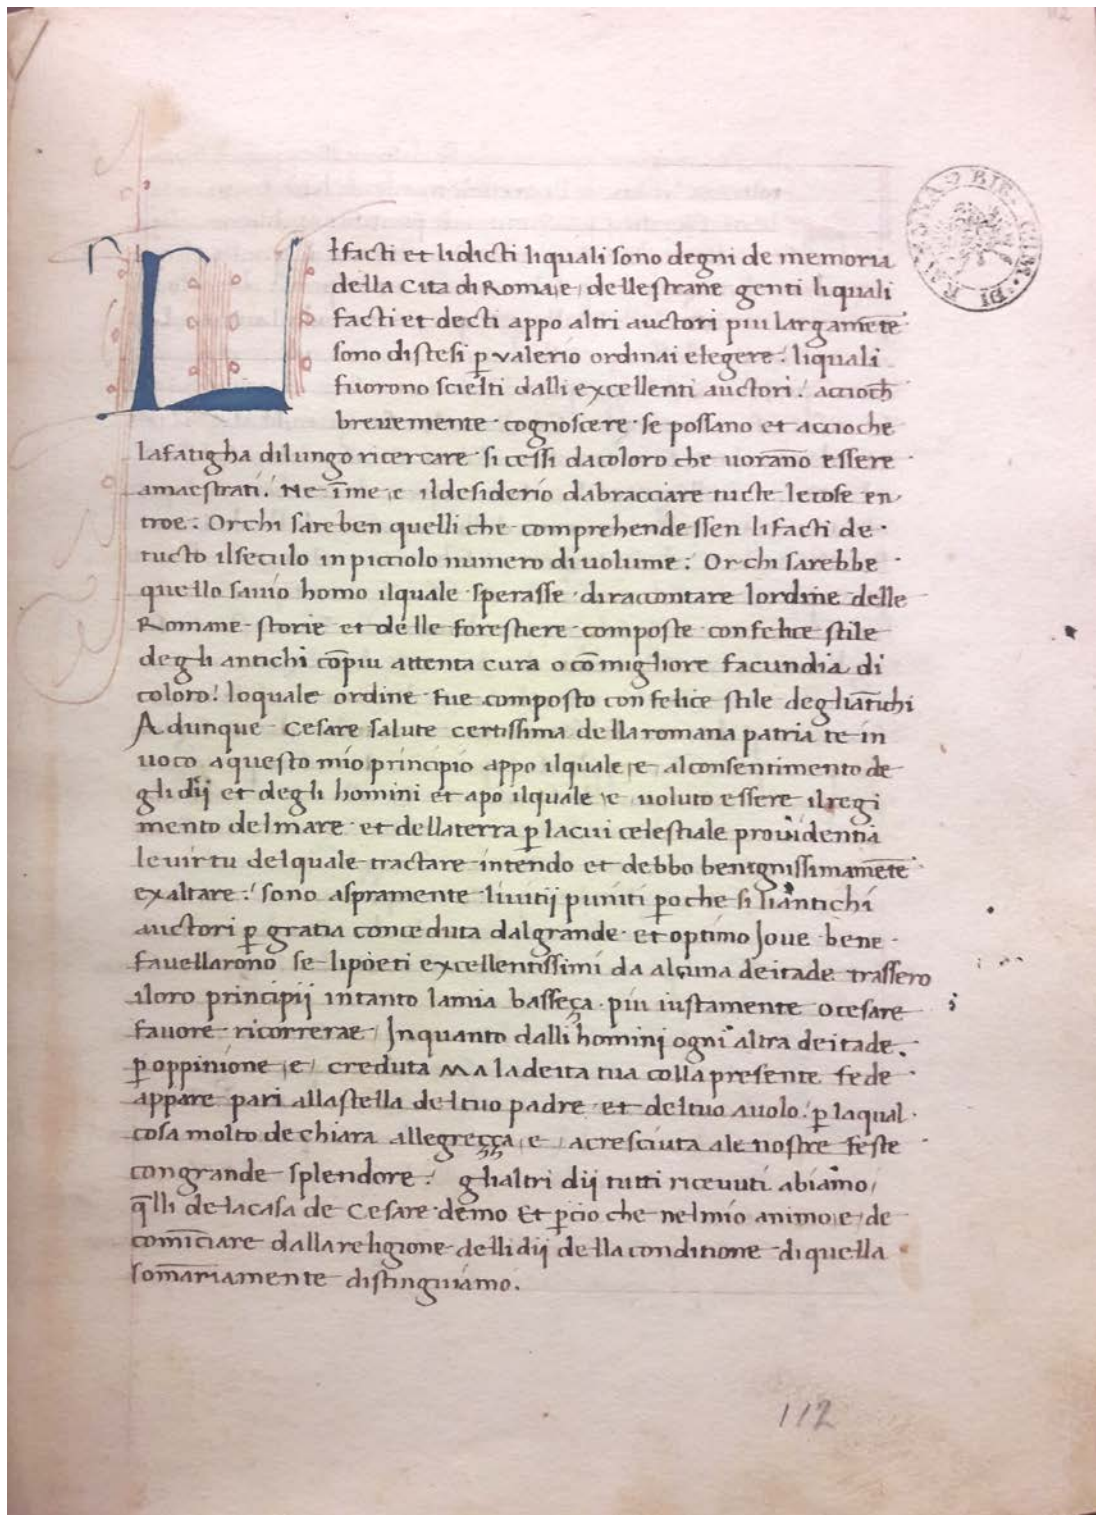 LI facti et li dicti li quali sono degni de memoria
della Cita di Roma, e, delle strane genti li quali
facti et decti appo altri auctori piu largamēte
sono distesi ꝑ valerio ordinai elegere: li quali
fuorono scielti dalli excellenti auctori: accioch̄
brevemente cognoscere se possano et accioche
la fatigha di lungo ricercare si cessi da coloro che vorāno essere
amaestrati. Ne ī me, e ildesiderio dabracciare tucte le cose en
troe. Or chi sareben quelli che comprehendessen li facti de
tucto il seculo in picciolo numero di volume: Or chi sarebbe
quello savio homo ilquale sperasse di raccontare lordine delle
Romane storie et delle forestiere composte con felice stile
degli antichi cō piu attenta cura o cō migliore facundia di
coloro! loquale ordine fue composto con felice stile degli ātichi
Adunque Cesare salute certissima della romana patria te in
uoco a questo mio principio appo ilquale, e al consentimento de
gli dij et degli homini et apo ilquale e voluto essere il regi
mento del mare et della terra ꝑ la cui celestiale providentia
le virtu del quale tractare intendo et debbo benignissimamēte
exaltare: sono aspramente li vitij puniti ꝑo che si li antichi
auctori ꝑ gratia conceduta dal grande et optimo Jove bene
favellarono se li poeti excellentissimi da alcuna deitade trassero
i loro principij in tanto la mia basseça piu iustamente o cesare
favore ricorrerae, In quanto dalli homini ogni altra deitade
ꝑ oppinione, e, creduta Ma la deita tua colla presente fede
appare pari alla stella del tuo padre et del tuo avolo: ꝑ la qual
cosa molto de chiara allegreçça, e, acresciuta ale nostre feste
con grande splendore: gli altri dij tutti ricevuti abiamo,
q̄lli de la casa de Cesare demo Et ꝑcio che nel mio animo, e, de
comīciare dalla religione delli dij della conditione di quella
som̄ariamente distinguiamo.
112